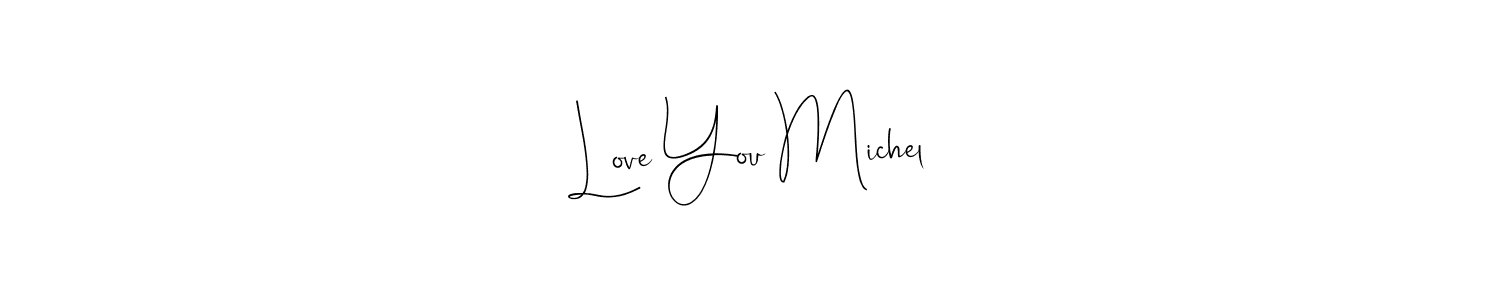 Love You Michel